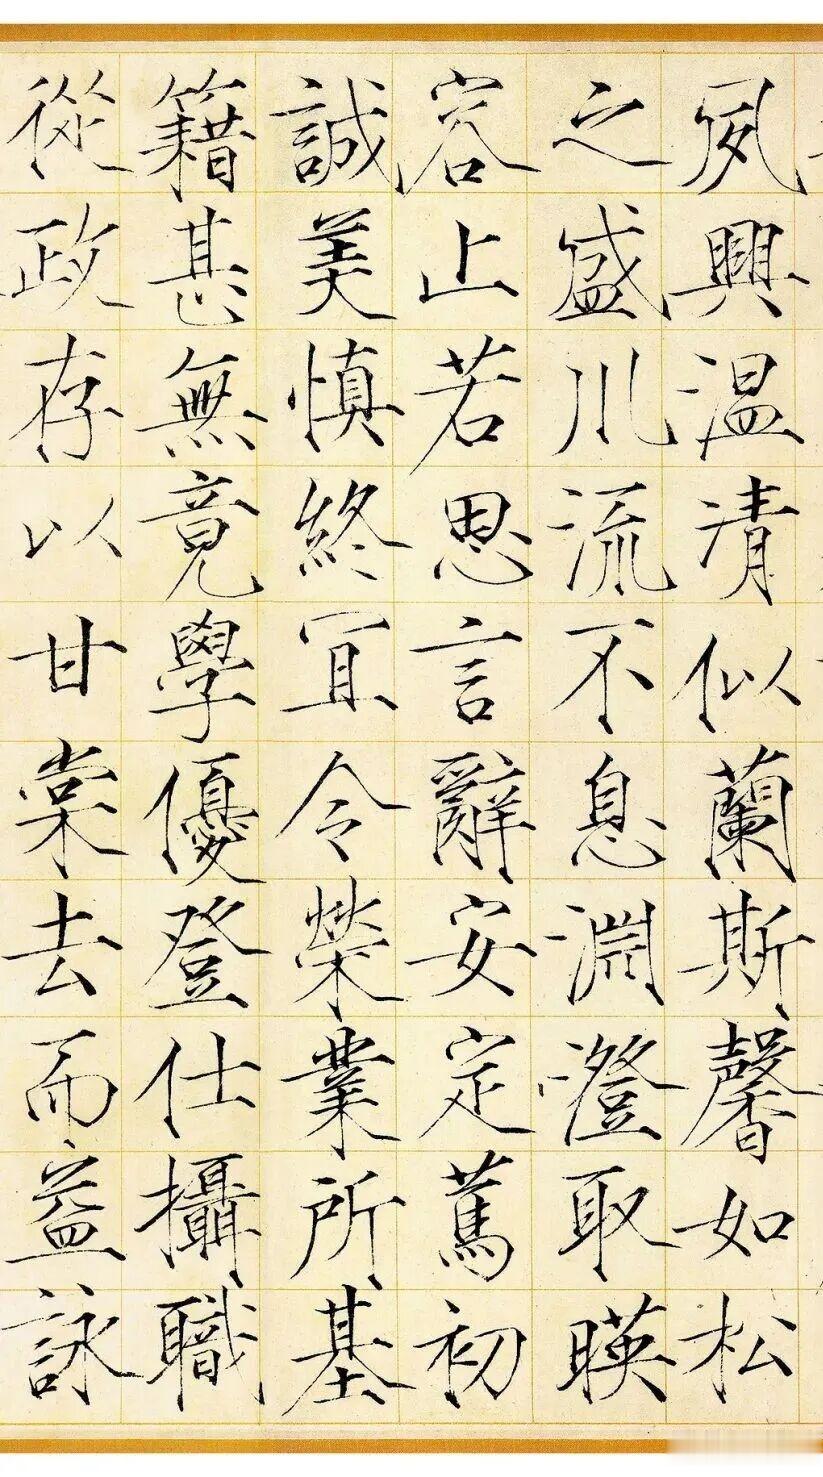 夙興温凊似蘭斯馨如松
之盛川流不息淵澄取暎
容止若思言辭安定篤初
誠美慎終宜令榮業所基
籍甚無竟學優登仕攝職
從政存以甘棠去而益詠